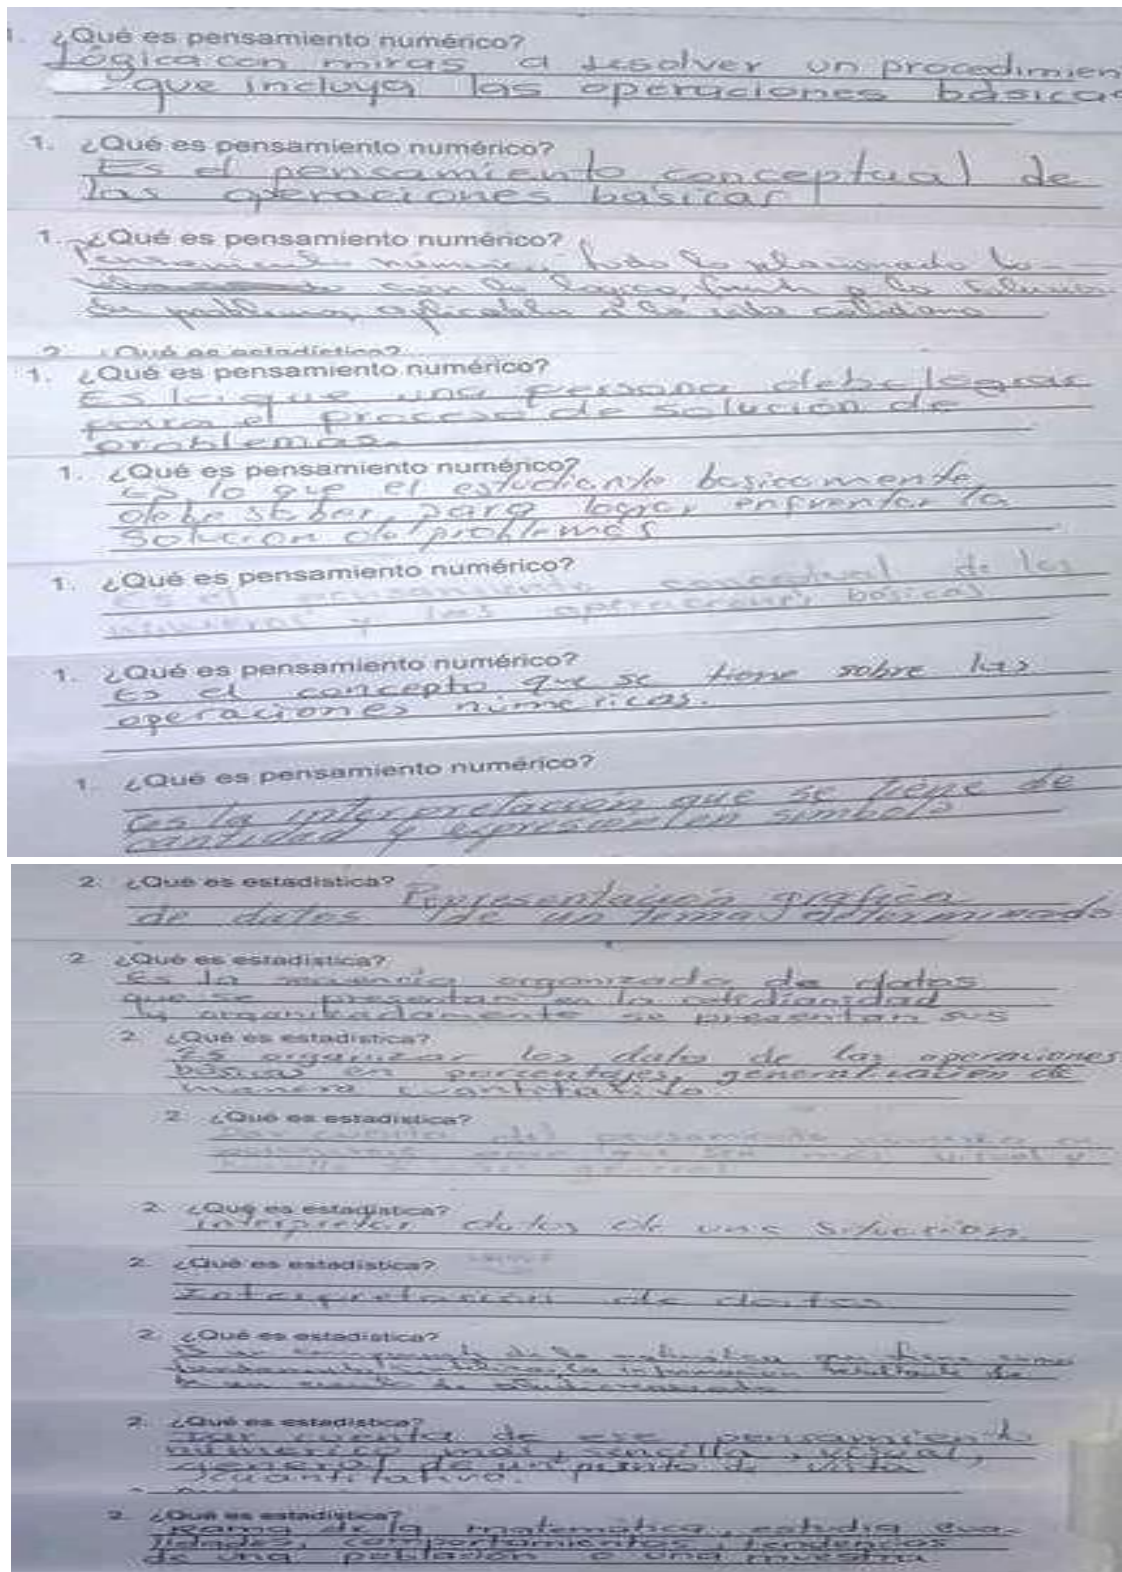 1. ¿Qué es pensamiento numérico?
Lógica con miras a resolver un procedimien
que incluya las operaciones básicas
1. ¿Qué es pensamiento numérico?
Es el pensamiento conceptual de
las operaciones basicas
1. ¿Qué es pensamiento numérico?
numerico: todo lo relacionado
con la logica, frente a la solución
de problemas, aplicable a la vida cotidiana
2. ¿Qué es estadística?
1. ¿Qué es pensamiento numérico?
Es lo que una persona debe lograr
para el proceso de solución de
problemas.
1. ¿Qué es pensamiento numérico?
Es lo que el estudiante basicamente
debe saber para lograr enfrentar la
solución de problemas
1. ¿Qué es pensamiento numérico?
Es el pensamiento conceptual de los
numeros y las operaciones basicas
1. ¿Qué es pensamiento numérico?
Es el concepto que se tiene sobre las
operaciones numericas.
1. ¿Qué es pensamiento numérico?
Es la interpretacion que se tiene de
cantidad y simbolo
2. ¿Qué es estadística?
Representación grafica
de datos de un tema determinado
2. ¿Qué es estadística?
Es la organizada de datos
que se presentan en la cotidianidad
y organizadamente se presentan sus
2. ¿Qué es estadística?
Es organizar los datos de las operaciones
básicas en porcentajes, generalización de
manera cuantitativa.
2. ¿Qué es estadística?
Dar cuenta del pensamiento numerico
que sea más visual y
general
2. ¿Qué es estadística?
interpretar datos de una situación.
2. ¿Qué es estadística?
Interpretación de datos
2. ¿Qué es estadística?
la información resultante de
2. ¿Qué es estadística?
Dar cuenta de ese pensamiento
numerico más sencilla, visual,
general de un punto de vista
cuantitativo.
2. ¿Qué es estadística?
Rama de la matemática, estudia
comportamientos, tendencias
de una población o una muestra